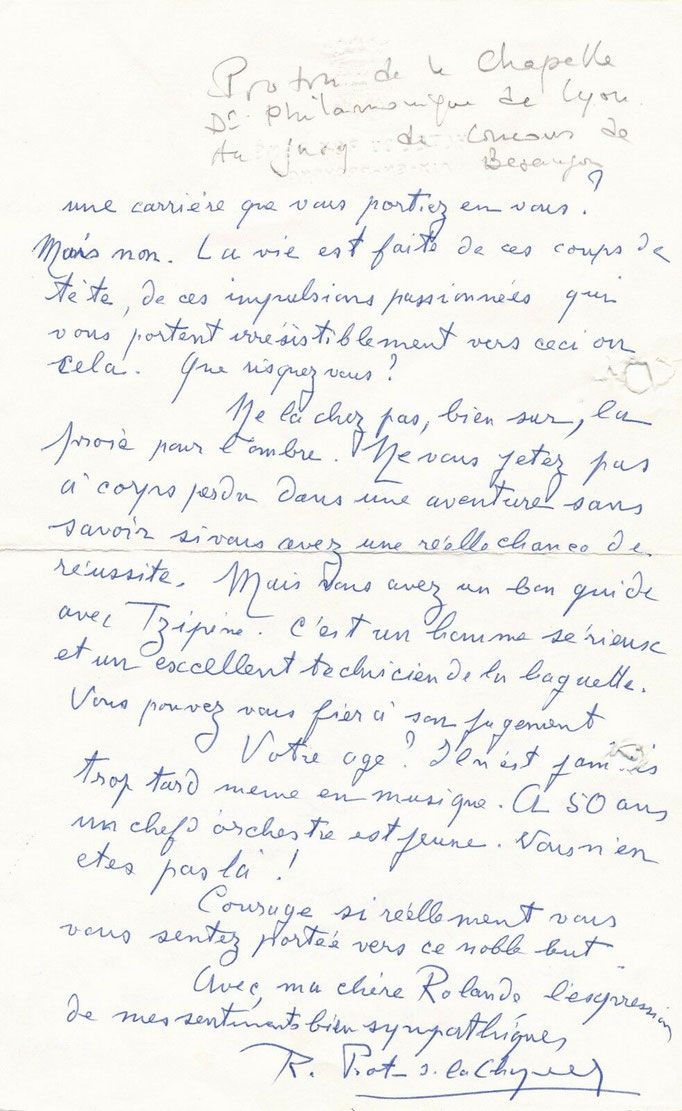 Proton de la Chapelle
Dr. Philarmonique de Lyon
Au jury du Concours de
Besançon
une carrière que vous portiez en vous?
Mais non. La vie est faite de ces coups de
tête, de ces impulsions passionnées qui
vous portent irrésistiblement vers ceci ou
cela. Que risquez vous?
Ne lachez pas, bien sur, la
proie pour l'ombre. Ne vous jetez pas
à corps perdu dans une aventure sans
savoir si vous avez une réelle chance de
réussite. Mais vous avez un bon guide
avec Tzipine. C'est un homme sérieux
et un excellent technicien de la baguette.
Vous pouvez vous fier à son jugement
Votre age? Il n'est jamais
trop tard meme en musique. A 50 ans
un chef d'orchestre est jeune. Vous n'en
etes pas là!
Courage si réellement vous
vous sentez portée vers ce noble but.
Avec, ma chère Rolande l'expression
de mes sentiments bien sympathiques
R. Proton de la Chapelle